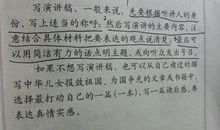 写演讲稿，一般来说，先要根据听讲人的身
份，写上适当的称呼；然后写演讲的主要内容，注
意结合具体材料把要表达的观点说清楚；最后可
以用简洁有力的话点明主题，或向听众发出号召。
如果不想写演讲稿，也可以从自己读过的描
写中华儿女报效祖国、为国争光的文章或书籍中，
选择最打动自己的一篇（一本），写一篇读后感，要
表达真情实感。